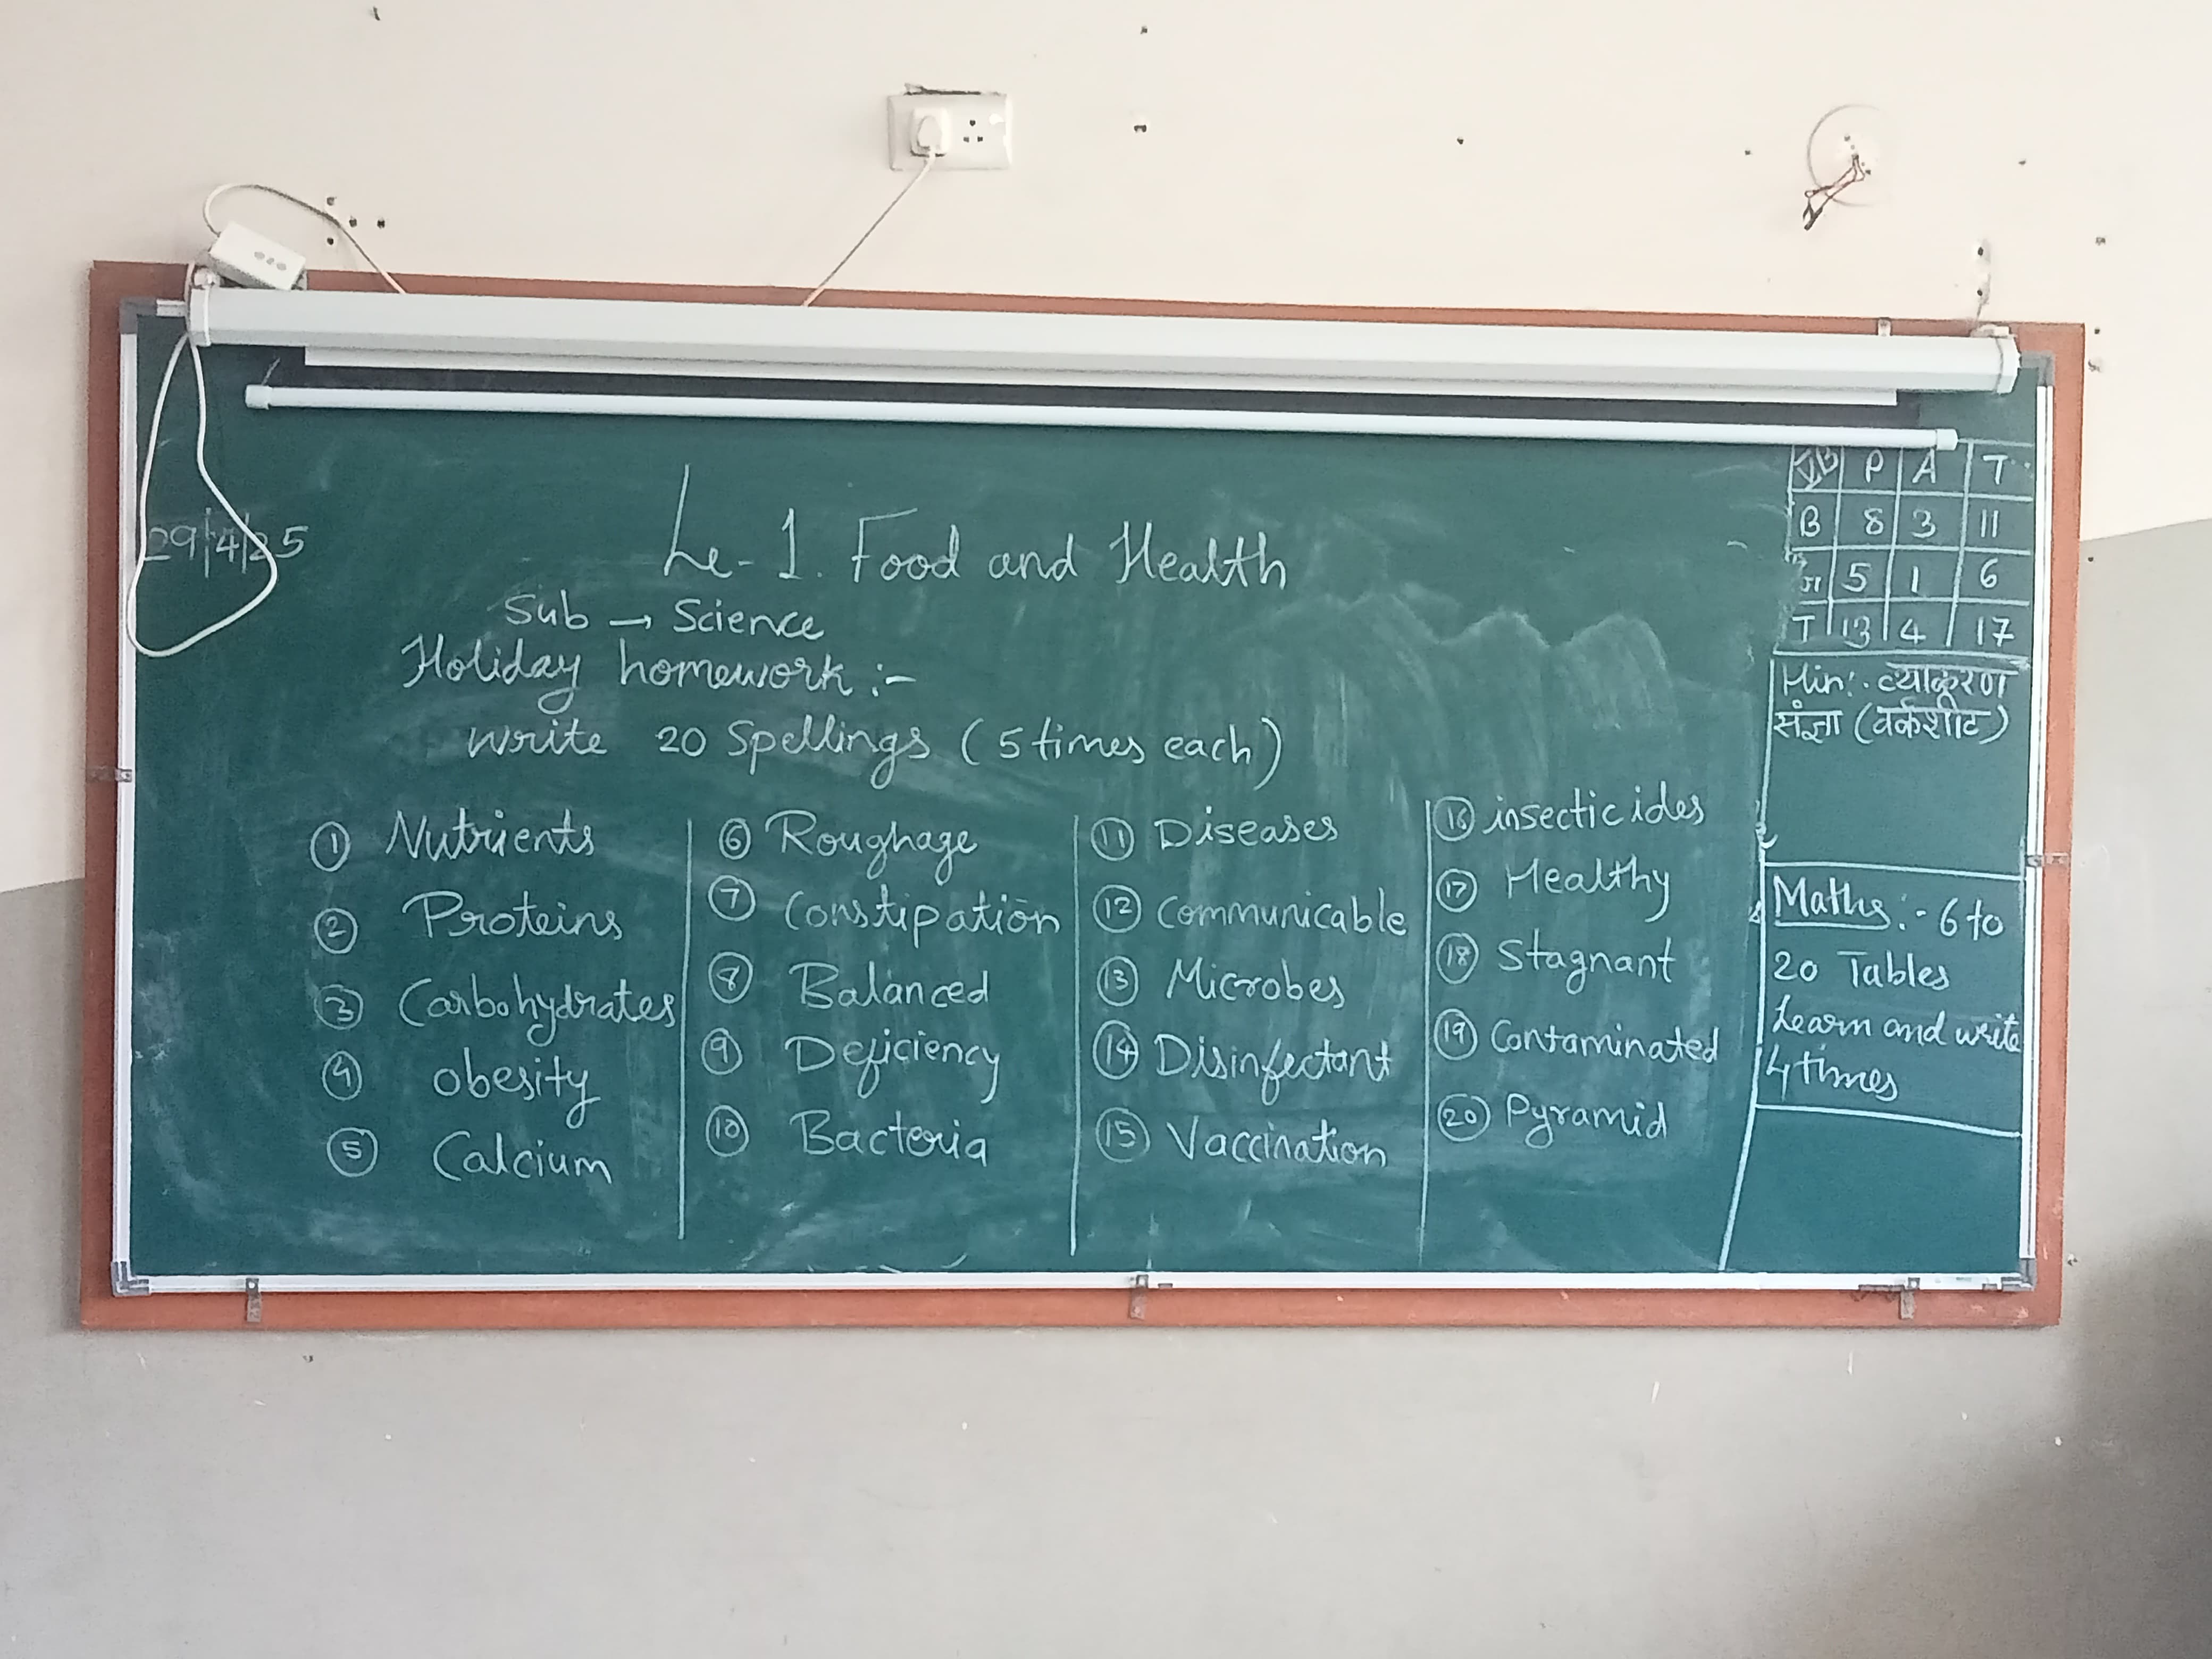 29/4/25
Le-1. Food and Health
Sub → Science
Holiday homework :-
write 20 Spellings (5 times each)
① Nutrients
② Proteins
③ Carbohydrates
④ obesity
⑤ Calcium
⑥ Roughage
⑦ Constipation
⑧ Balanced
⑨ Deficiency
⑩ Bacteria
⑪ Diseases
⑫ Communicable
⑬ Microbes
⑭ Disinfectant
⑮ Vaccination
⑯ insecticides
⑰ Healthy
⑱ Stagnant
⑲ Contaminated
⑳ Pyramid
P A T
B 8 3 11
G 5 1 6
T 13 4 17
Hin:- व्याकरण
संज्ञा (वर्कशीट)
Maths :- 6 to
20 Tables
Learn and write
4 times